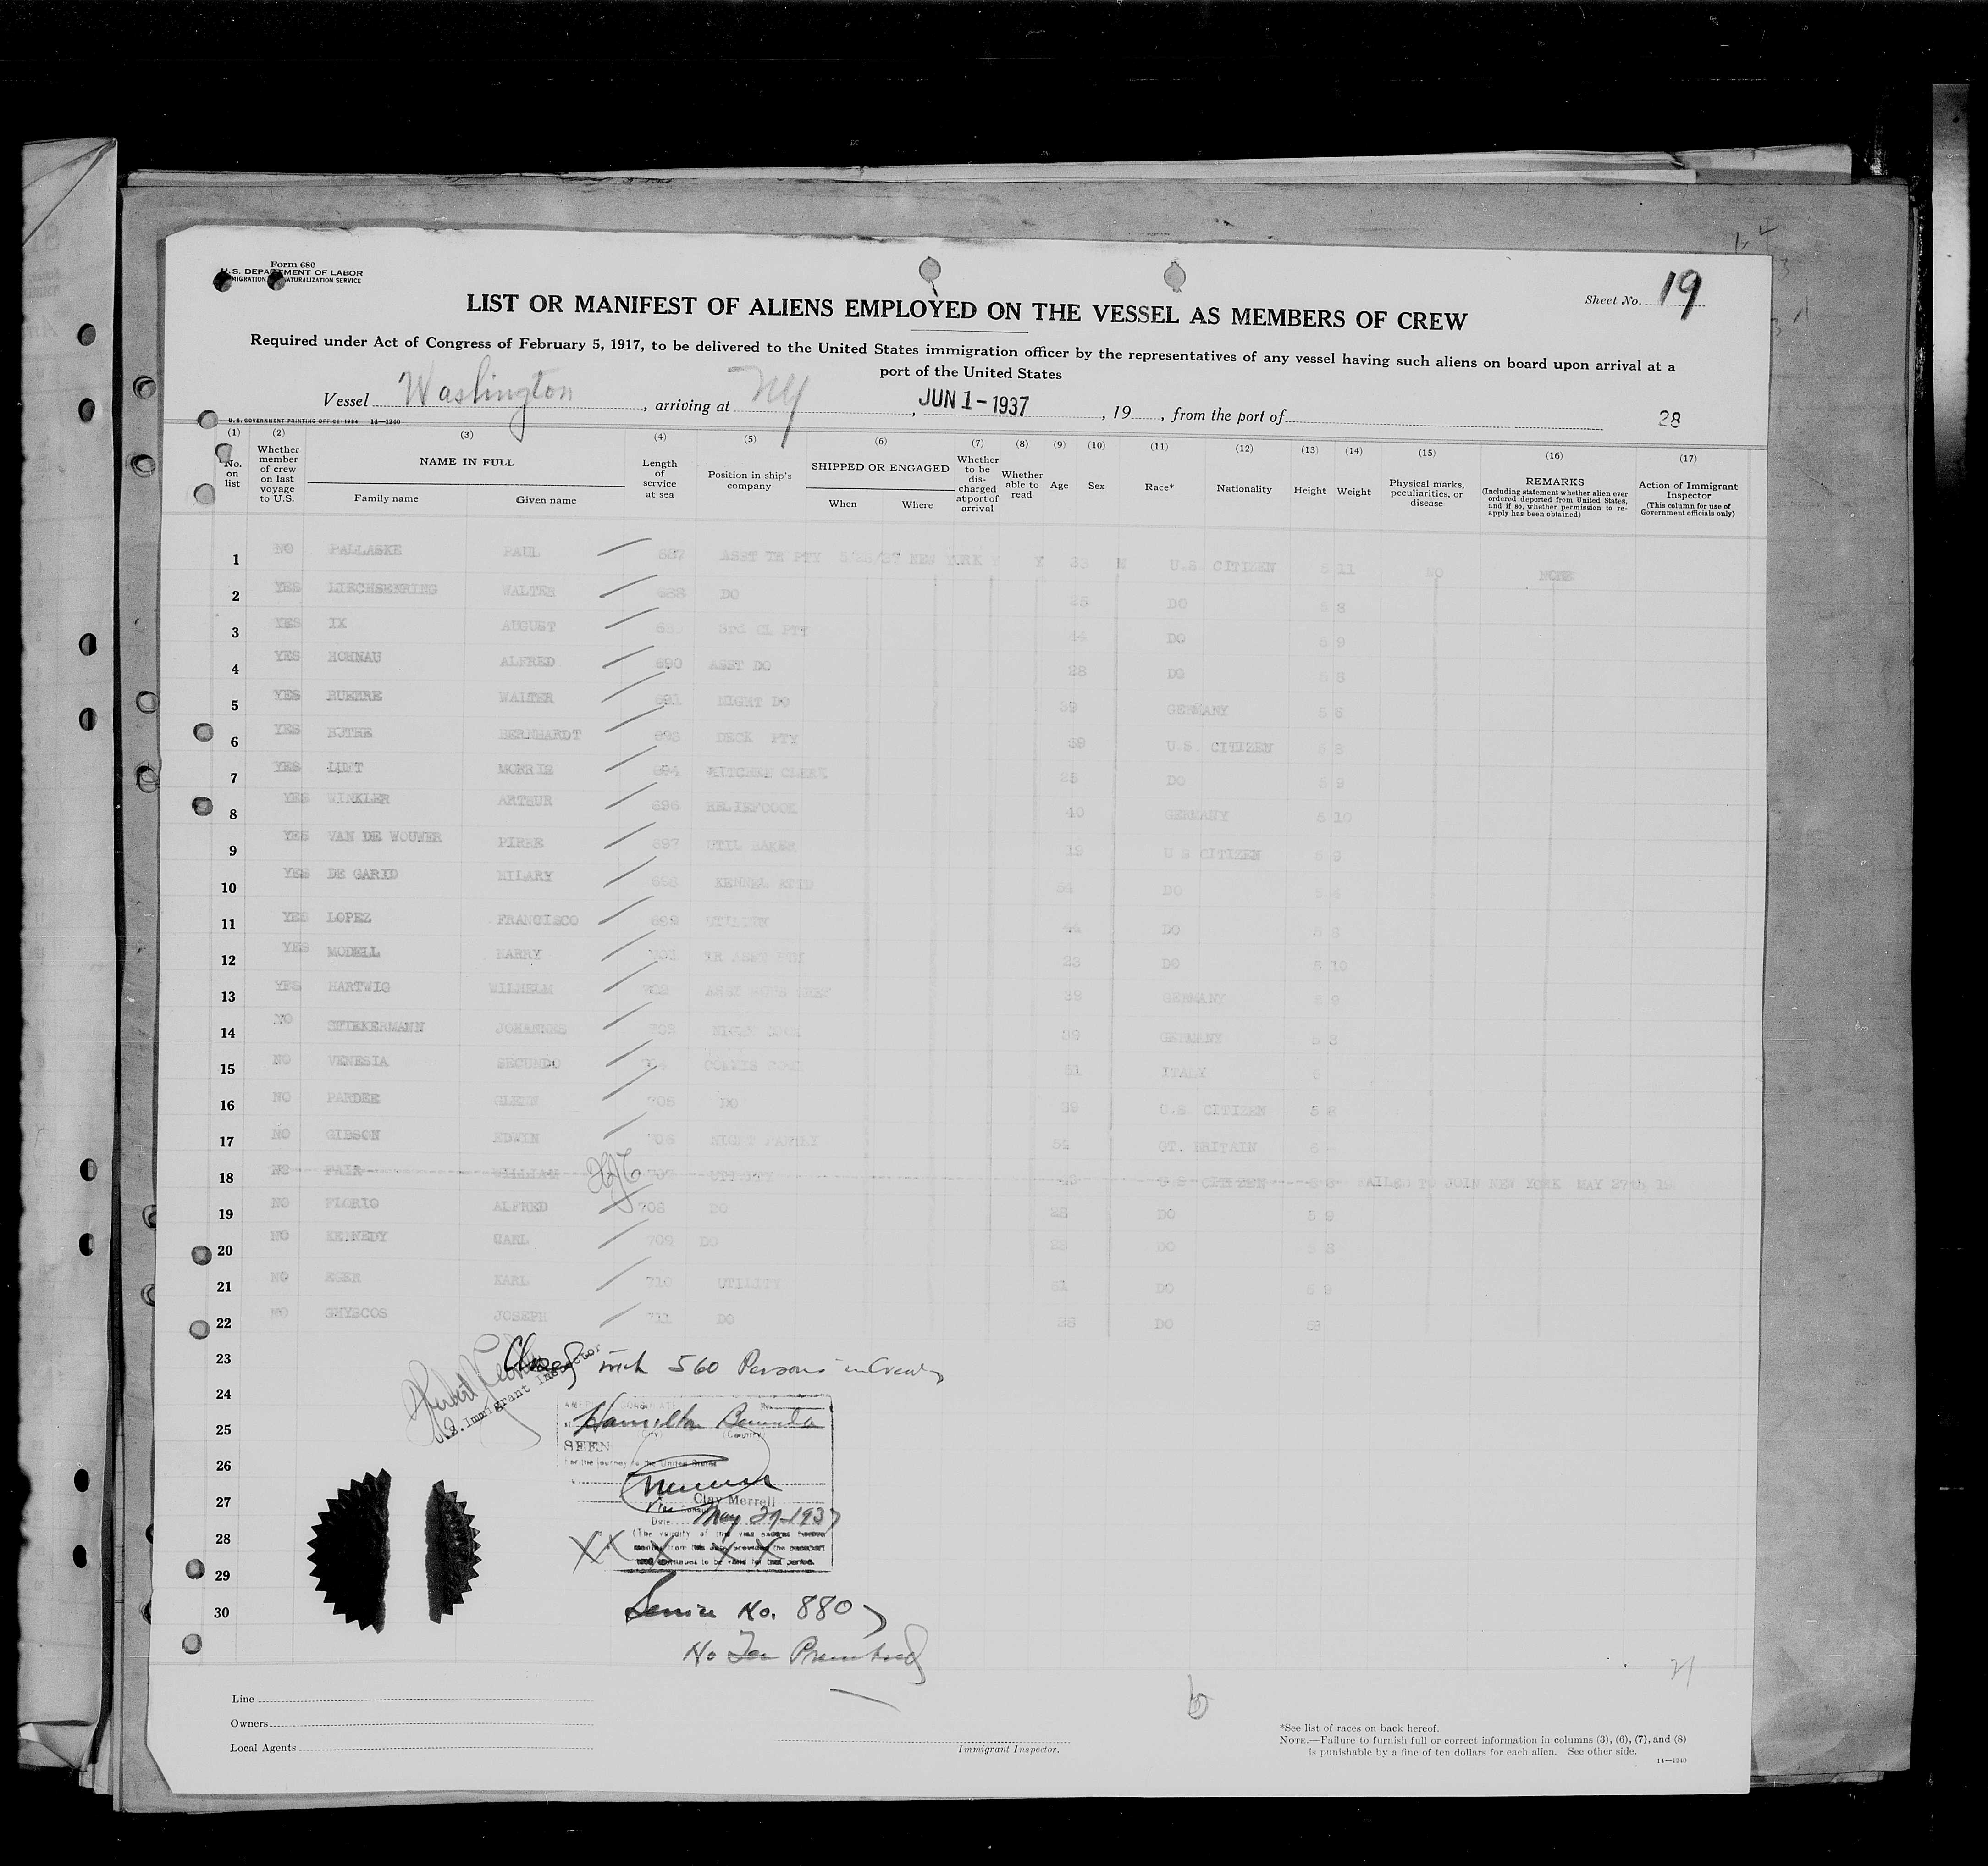 Form 680
U.S. DEPARTMENT OF LABOR
IMMIGRATION NATURALIZATION SERVICE
Sheet No. 19
LIST OR MANIFEST OF ALIENS EMPLOYED ON THE VESSEL AS MEMBERS OF CREW
Required under Act of Congress of February 5, 1917, to be delivered to the United States immigration officer by the representatives of any vessel having such aliens on board upon arrival at a
port of the United States
Vessel Washington, arriving at NY, JUN 1-1937, 19, from the port of 28
U.S. GOVERNMENT PRINTING OFFICE: 1934 14—1240
(1) (2) (3) (4) (5) (6) (7) (8) (9) (10) (11) (12) (13) (14) (15) (16) (17)
No. on list
Whether member of crew on last voyage to U.S.
NAME IN FULL
Family name Given name
Length of service at sea
Position in ship's company
SHIPPED OR ENGAGED
When Where
Whether to be discharged at port of arrival
Whether able to read
Age Sex Race* Nationality Height Weight
Physical marks, peculiarities, or disease
REMARKS
(Including statement whether alien ever ordered deported from United States, and if so, whether permission to re-apply has been obtained)
Action of Immigrant Inspector
(This column for use of Government officials only)
1 NO PALLASKE PAUL 687 ASST TR PTY NEW YORK Y 33 M U.S CITIZEN 5 11 NO NONE
2 YES LIECHSENRING WALTER 688 DO 25 DO 5 8
3 YES IX AUGUST 3rd CL PTY 44 DO 5 9
4 YES HOHNAU ALFRED 690 ASST DO 28 DO 5 8
5 YES RUERRE WALTER 691 NIGHT DO 39 GERMANY 5 6
6 YES BERNHARDT 693 DECK PTY 39 U.S. CITIZEN 5 8
7 YES LUFT MORRIS 694 KITCHEN CLERK 25 DO 5 9
8 YES WINKLER ARTHUR 696 RELIEFCOOK 40 GERMANY 5 10
9 YES VAN DE WOUWER PIRRE 697 UTIL BAKER 19 U S CITIZEN 5 8
10 YES DE GARID HILARY 698 KENNEL ATTD 54 DO
11 YES LOPEZ FRANCISCO 699 UTILITY 44 DO 5 8
12 YES MODELL HARRY 23 DO 5 10
13 YES HARTWIG WILHELM 702 39 GERMANY 5 9
14 NO STIEKERMANN JOHANNES 703 NIGHT COOK GERMANY 5 8
15 NO VENESIA SECUNDO COMMIS COOK 51 ITALY 5
16 NO PARDEE GLENN 705 DO 39 U.S. CITIZEN 5 8
17 NO GIBSON EDWIN 706 NIGHT 54 GT. BRITAIN 5
18 NO FAIR WILLIAM 707 UTILITY U S CITIZEN 5 8 FAILED TO JOIN NEW YORK MAY 27th
19 NO FLORIO ALFRED 708 DO 28 DO 5 9
20 NO KENNEDY CARL 709 DO DO 5 8
21 NO EGER KARL 710 UTILITY 51 DO 5 9
22 NO GHYSCOS JOSEPH 711 DO 26 DO
23 Closed with 560 Persons in Crew
U.S. Immigrant Inspector
24
25 Hamilton Bermuda
(City) (Country)
SEEN
26 For the journey to the United States
27 Clay Merrell
Vice Consul
Date May 29-1937
28 (The validity of this visa expires twelve
months from this date provided the passport
continues to be valid for that period.
29
30 Service No. 880
No Fee Prescribed
21
Line
Owners
Local Agents
Immigrant Inspector.
*See list of races on back hereof.
NOTE.—Failure to furnish full or correct information in columns (3), (6), (7), and (8)
is punishable by a fine of ten dollars for each alien. See other side.
14—1240